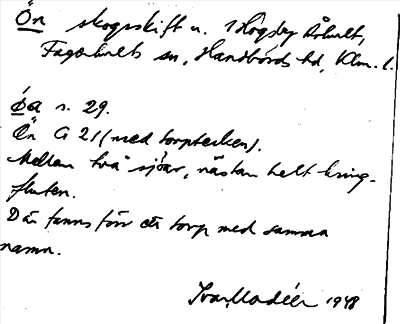 Ön skogsskift u. Högsby Råhult,
Fagerhults sn, Handbörds hd, Klm. l.
Öa s. 29.
Ön G 21 (med torptecken).
Mellan två sjöar, nästan helt kring-
fluten.
Där fanns förr ett torp med samma
namn.
Ivar Modéer 1948